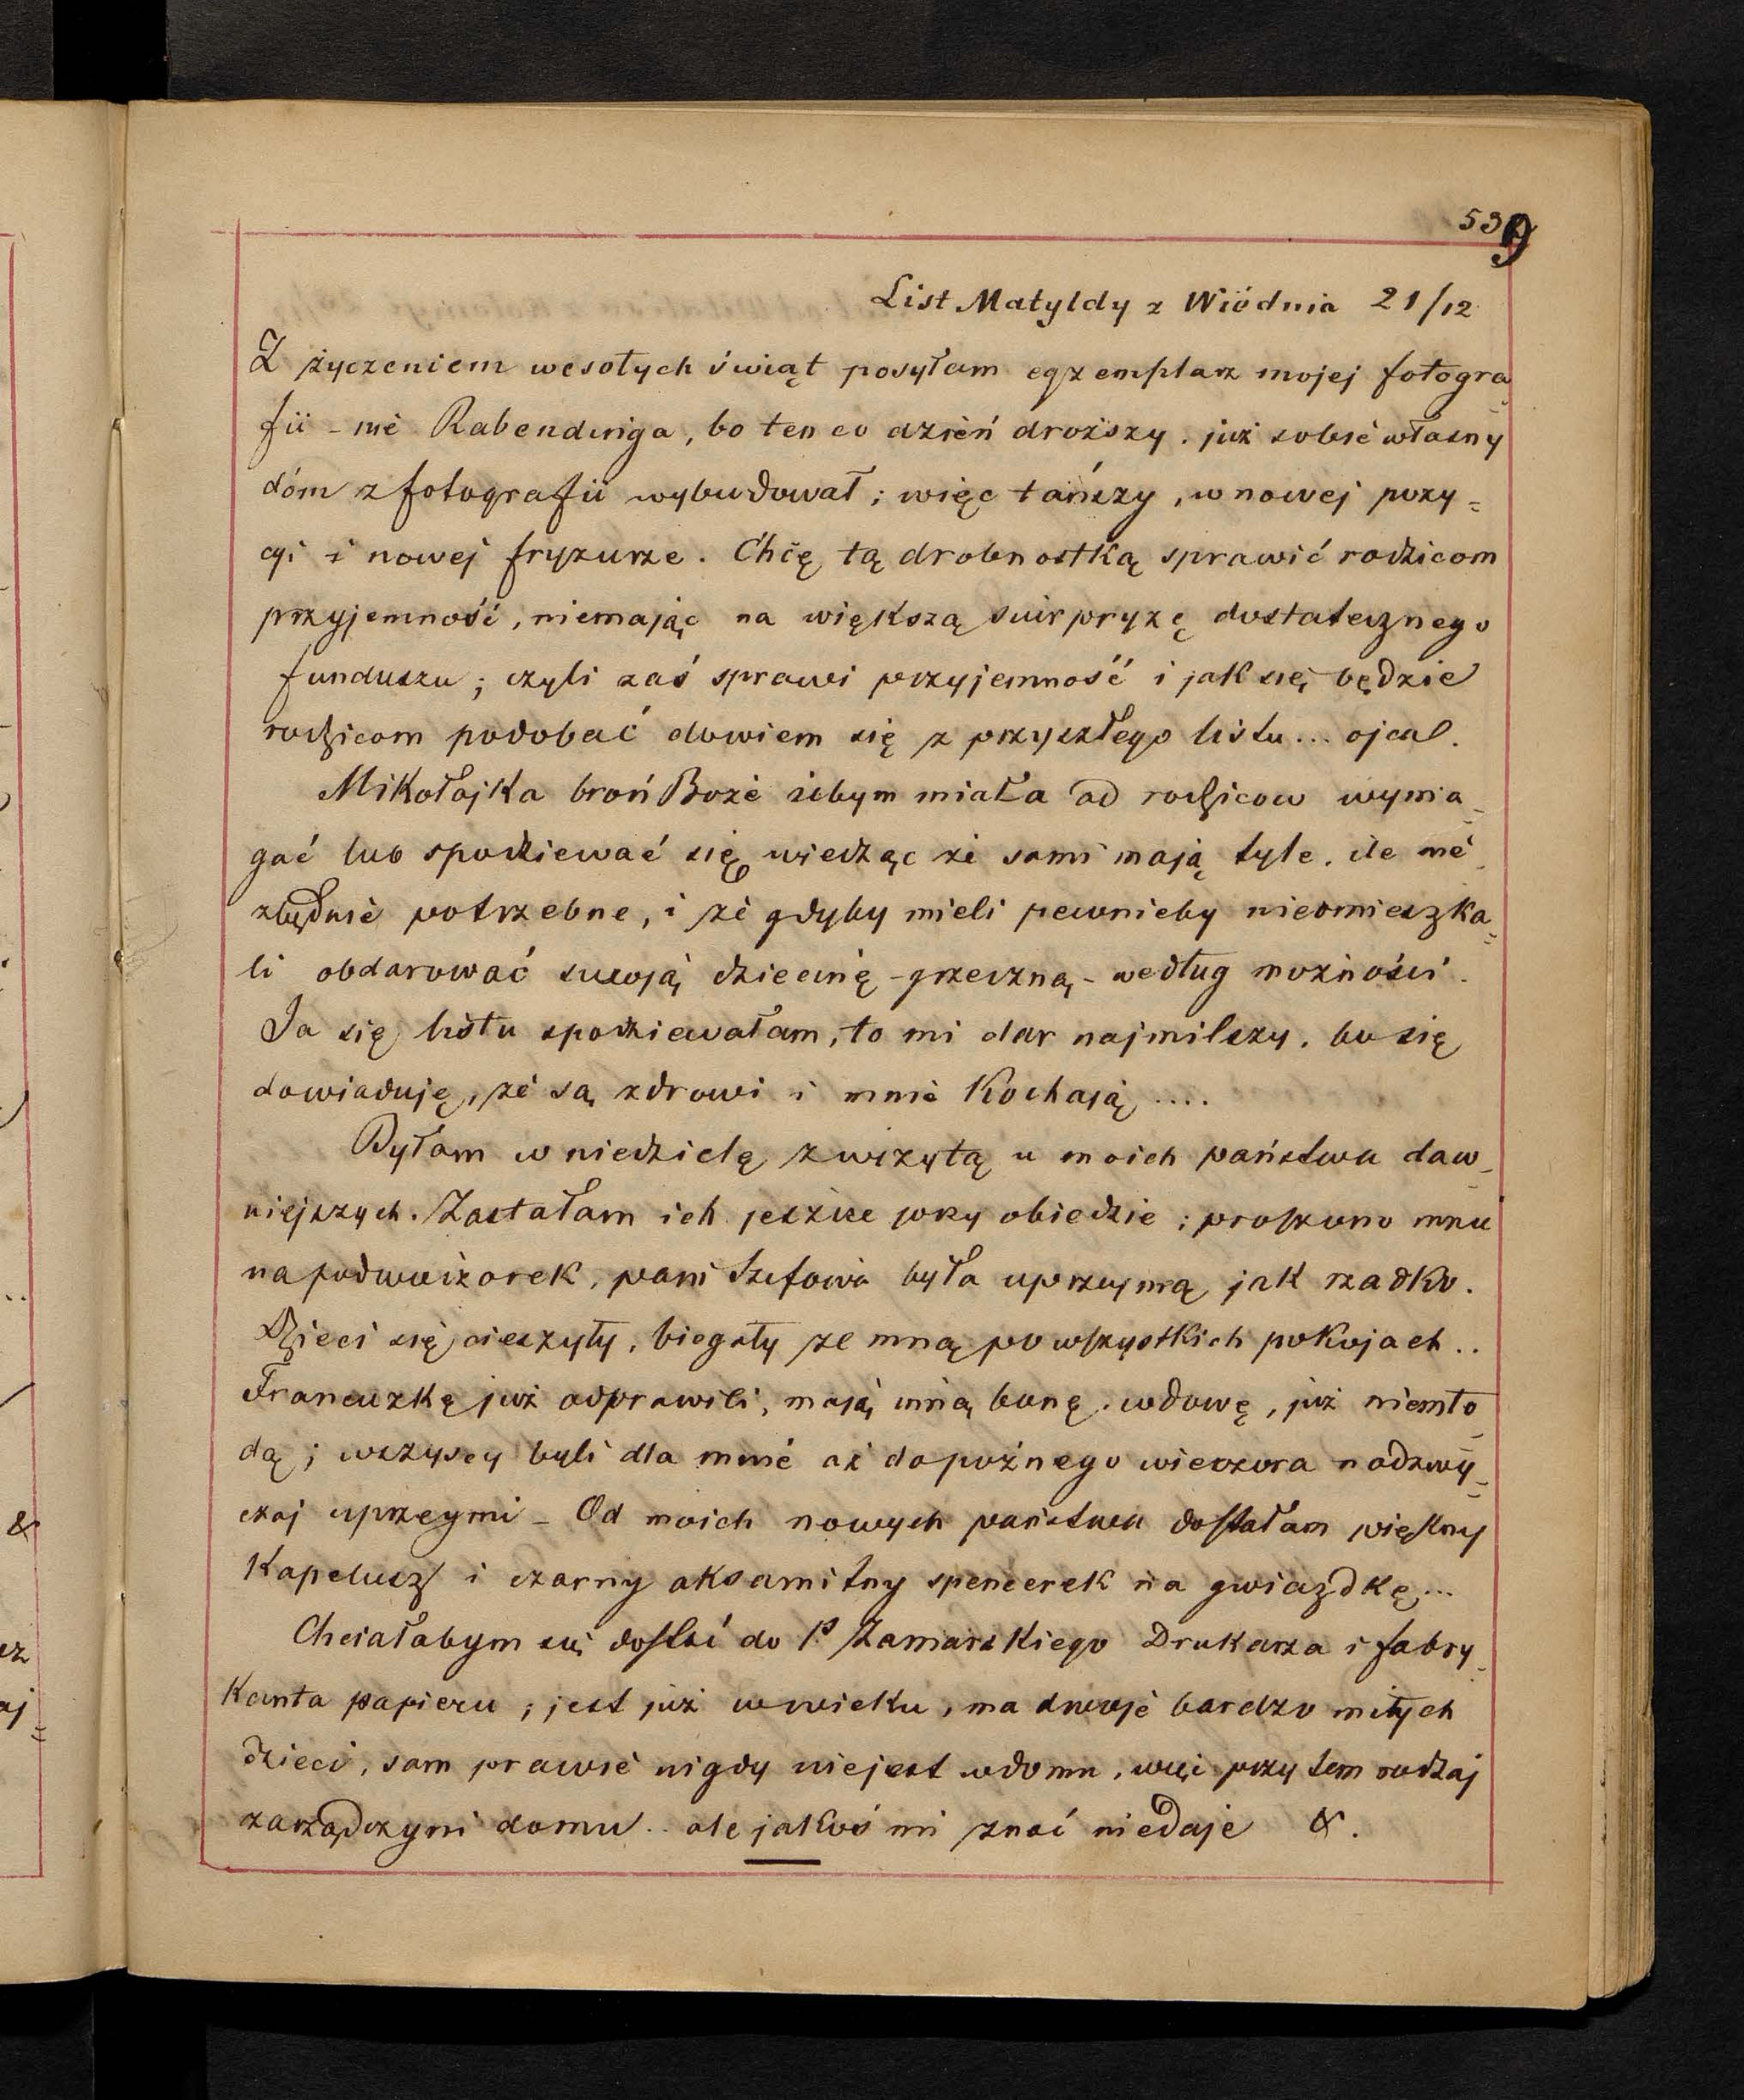 539
List Matyldy z Wiédnia 21/12
Z życzeniem wesołych świąt posyłam egzemplarz mojej fotogra_
fii – nié Rabendinga, bo ten co dzień droższy, już sobié własny
dóm z fotografii wybudował; więc tańszy, w nowej pozy=
cyi i nowej fryzurze. Chcę tą drobnostką sprawić rodzicom
przyjemność, niemając na większą suirpryzę dostatecznego
funduszu; czyli zaś sprawi przyjemność i jak się będzie
rodzicom podobać dowiem się z przyszłego listu... ojca.
Mikołajka broń Bożé żebym miała od rodziców wyma_
gać lub spodziewać się wiedząc żé sami mają tyle, ile nié_
zbędnié potrzebne, i żé gdyby mieli pewnieby nieomieszka=
li obdarować swoją dziecinę – grzeczną – według możności.
Ja się listu spodziewałam, to mi dar najmilszy, bo się
dowiaduję, żé są zdrowi i mnié Kochają ....
Byłam w niedzielę z wizytą u moich państwa daw_
niejszych. Zastałam ich jeszcze przy obiedzie; proszono mnie
na podwieczorek, pani Szefowa była uprzejmą jak rzadko.
Dzieci się cieszyły, biegały ze mną po wszystkich pokojach ..
Francuzkę już odprawili, mają inną bonę, wdowę, już niemło_
dą; wszyscy byli dla mnié aż do poźnego wieczora nadzwy=
czaj uprzejmi – Od moich nowych państwa dostałam piękny
Kapelusz i czarny aksamitny spencerek na gwiazdkę...
Chciałabym się dostać do P. Zamarskiego Drukarza i fabry_
Kanta papieru; jest już w wieku, ma dwojé bardzo miłych
dzieci, sam prawié nigdy niejest w domu, więc przytem rodzaj
zarządczyni domu .. ale jakoś mi znać niedaje &.